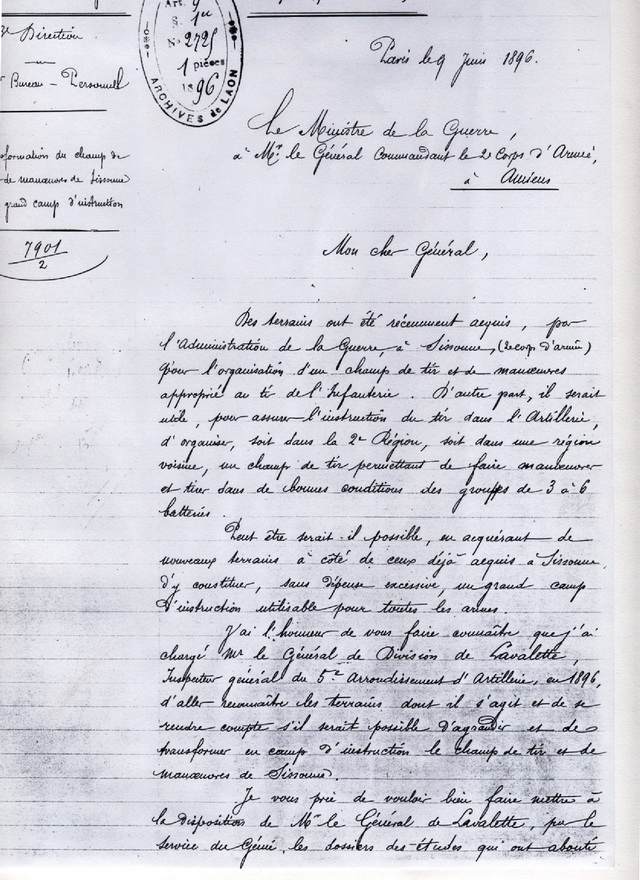 3e Direction
Bureau - Personnel
Art. 9
S. 1er
No 2725
1 pièces
1896
ARCHIVES de LAON
Paris le 9 Juin 1896.
Le Ministre de la Guerre,
à Mr. le Général Commandant le 2e Corps d'Armée,
à Amiens
formation du champ de
de manœuvres de Sissonne
grand camp d'instruction
7901
2
Mon cher Général,
Des terrains ont été récemment acquis, par
l'Administration de la Guerre, à Sissonne, (2e corps d'armée)
pour l'organisation d'un champ de tir et de manœuvres
approprié au tir de l'Infanterie. D'autre part, il serait
utile, pour assurer l'instruction du tir dans l'Artillerie,
d'organiser, soit dans la 2e Région, soit dans une région
voisine, un champ de tir permettant de faire manœuvrer
et tirer dans de bonnes conditions des groupes de 3 à 6
batteries.
Peut être serait-il possible, en acquérant de
nouveaux terrains à côté de ceux déjà acquis à Sissonne,
d'y constituer, sans dépense excessive, un grand camp
d'instruction utilisable pour toutes les armes.
J'ai l'honneur de vous faire connaître que j'ai
chargé Mr le Général de Division de Lavalette,
Inspecteur général du 5e Arrondissement d'Artillerie, en 1896,
d'aller reconnaître les terrains dont il s'agit et de se
rendre compte s'il serait possible d'agrandir et de
transformer en camp d'instruction le champ de tir et de
manœuvres de Sissonne.
Je vous prie de vouloir bien faire mettre à
la disposition de Mr le Général de Lavalette, par le
service du Génie, les dossiers des études qui ont abouti